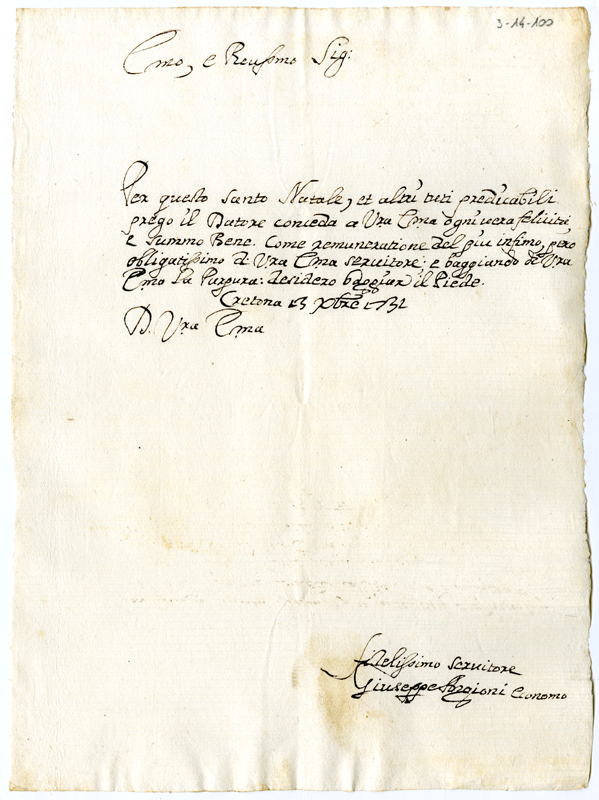 3-14-100
Emo, e Reussmo Sig:
Per questo santo Natale, et altri tuti predicabili
prego il Datore conceda a Vra Ema ogni vera felicità
e summo Bene. Come remuneratione del piu infimo, pero
obligatissimo di Vra Ema servitore: e baggiando de Vra
Emo la Purpura: desidero baggiar il Piede.
Cretona 13 Xbre 1731
D. Vra Ema
fidelissimo servitore
Giuseppe Argioni Economo